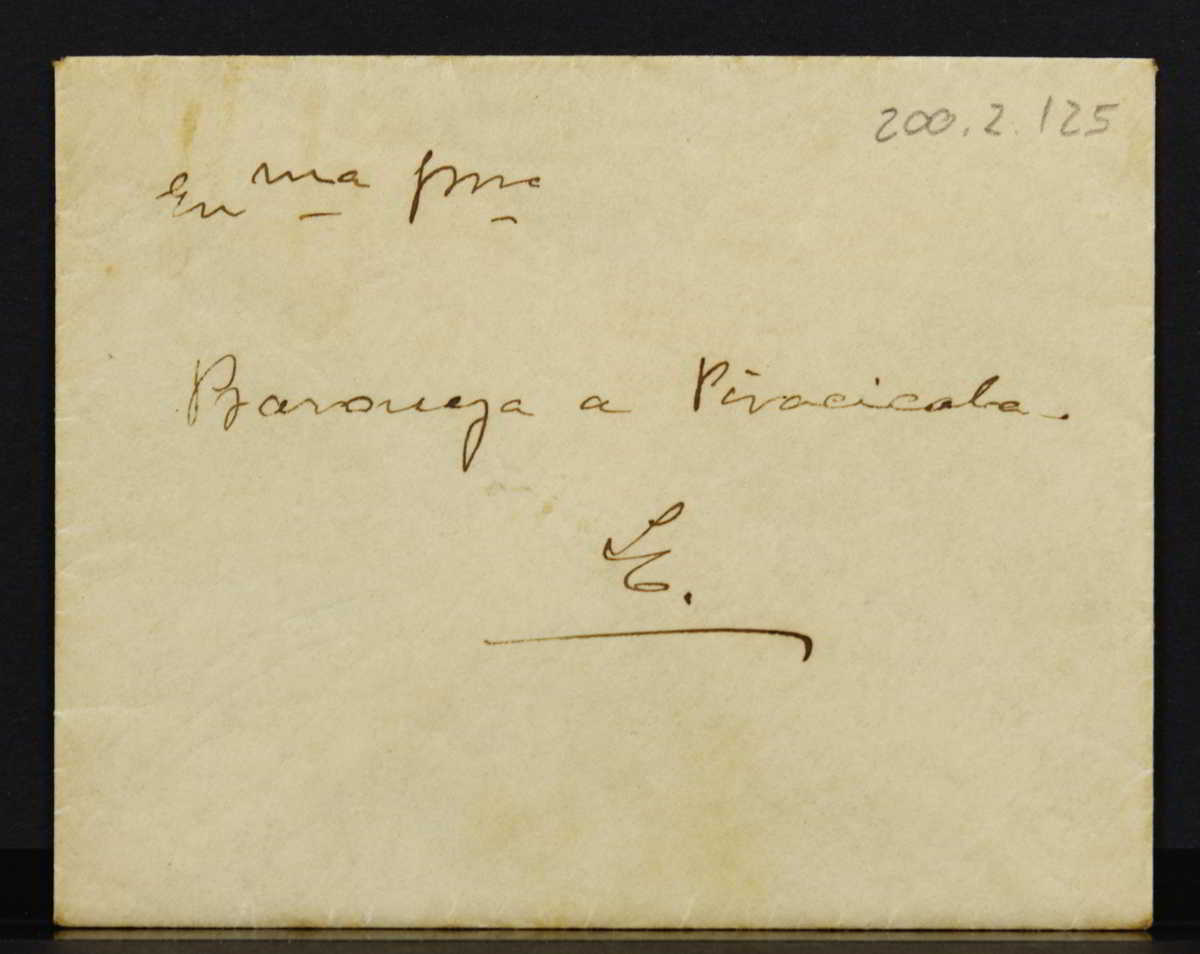 200.2.125
Exma Sma
Baroneza a Piracicaba.